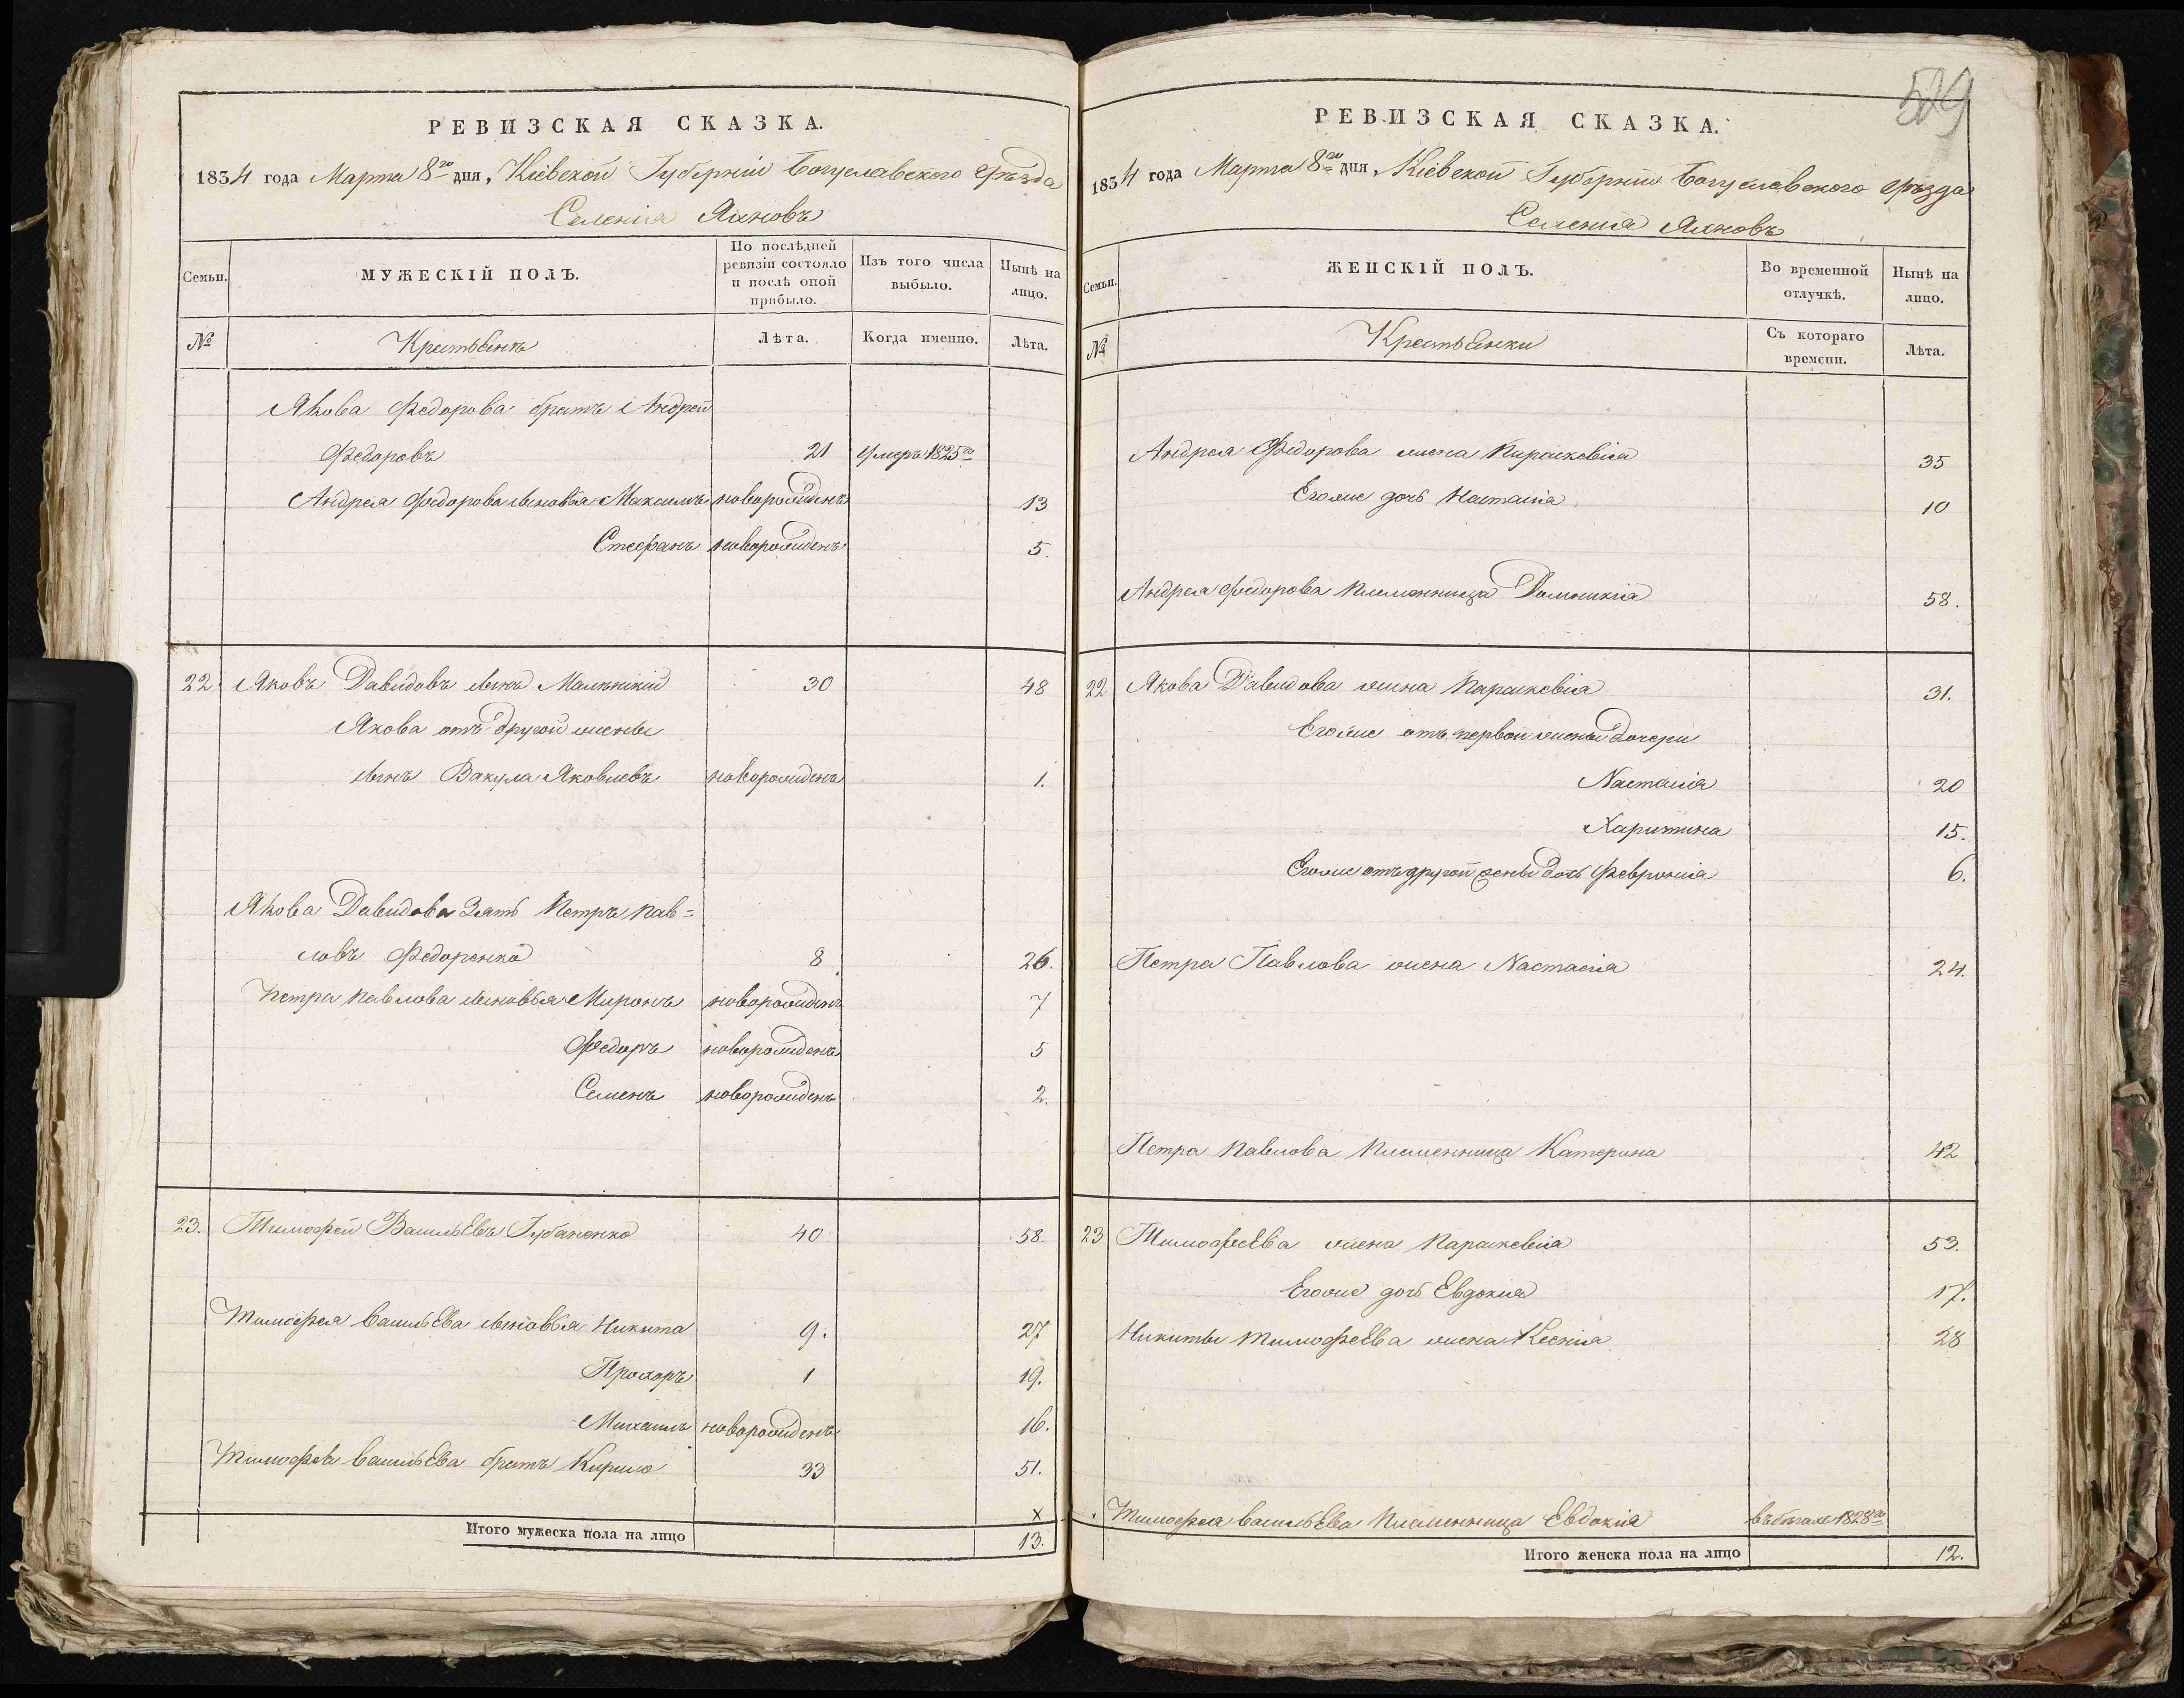 РЕВИЗСКАЯ СКАЗКА.
1834 года Марта 8го дня, Кіевской Губерніи Богуславского Уѣзда
Селенія Яхновъ
Семьи.
МУЖЕСКІЙ ПОЛЪ.
По послѣдней ревизіи состояло и послѣ оной прибыло.
Изъ того числа выбыло.
Нынѣ на лицо.
№
Крестьянъ
Лѣта.
Когда именно.
Лѣта.
Якова Федорова братъ Андрей
Федоровъ 21 Умеръ 1825го
Андрея Федорова сыновья Максимъ новорожденъ 13
Стефанъ новорожденъ 5.
22 Яковъ Давидовъ сынъ 30 48
Якова отъ другой жены
сынъ Вакула Яковлевъ новорожденъ 1.
Якова Давидова Зять Петръ Пав=
ловъ Федоренко 8 26.
Петра Павлова сыновья Миронъ новорожденъ 7
Федоръ новорожденъ 5
Семенъ новорожденъ 2.
23. Тимофей Васильевъ Губаненко 40 58.
Тимофея Васильева сыновья Никита 9. 27
Прохоръ 1 19.
Михаилъ новорожденъ 16.
Тимофея Васильева братъ Кирило 33 51.
х
Итого мужеска пола на лицо 13.
529
РЕВИЗСКАЯ СКАЗКА.
1834 года Марта 8го дня, Кіевской Губерніи Богуславского Уѣзда
Селенія Яхновъ
Семьи.
ЖЕНСКІЙ ПОЛЪ.
Во временной отлучкѣ.
Нынѣ на лицо.
№
Крестьянки
Съ котораго времени.
Лѣта.
Андрея Федорова жена Параскевія 35
Егоже дочь Настасія 10
Андрея Федорова племенница Домникія 58.
22 Якова Давидова жена Параскевія 31.
Егоже отъ первой жены дочери
Настасія 20
Харитина 15.
Егоже отъ другой жены дочь Февронія 6.
Петра Павлова жена Настасія 24.
Петра Павлова Племенница Катерина 42
23 Тимофеева жена Параскевія 53.
Егоже дочь Евдокія 17.
Никиты Тимофеева жена Ксенія 28
Тимофея Васильева Племенница Евдокія въ бѣгахъ 1828го
Итого женска пола на лицо 12.